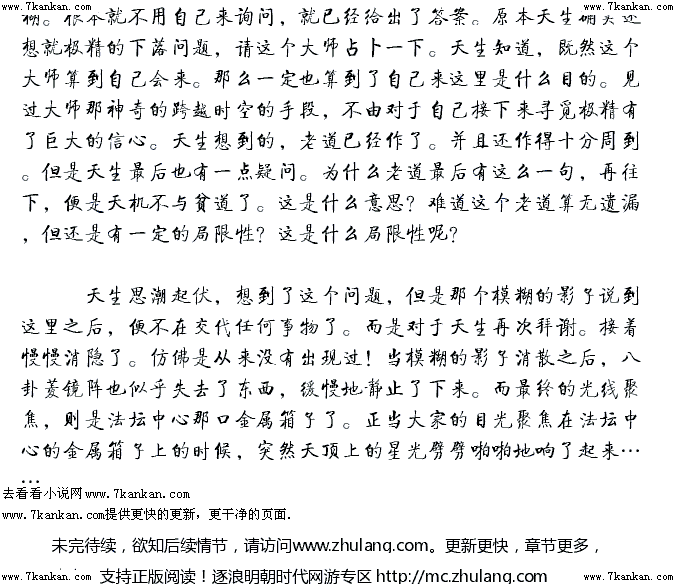 www.7kankan.com www.7kankan.com
糊。根本就不用自己来询问，就已经给出了答案。原本天生确实还
想就极精的下落问题，请这个大师占卜一下。天生知道，既然这个
大师算到自己会来。那么一定也算到了自己来这里是什么目的。见
过大师那神奇的跨越时空的手段，不由对于自己接下来寻觅极精有
了巨大的信心。天生想到的，老道已经作了。并且还作得十分周到
。但是天生最后也有一点疑问。为什么老道最后有这么一句，再往
下，便是天机不与贫道了。这是什么意思？难道这个老道算无遗漏
，但还是有一定的局限性？这是什么局限性呢？
天生思潮起伏，想到了这个问题，但是那个模糊的影子说到
这里之后，便不在交代任何事物了。而是对于天生再次拜谢。接着
慢慢消隐了。仿佛是从来没有出现过！当模糊的影子消散之后，八
卦菱镜阵也似乎失去了东西，缓慢地静止了下来。而最终的光线聚
焦，则是法坛中心那口金属箱子了。正当大家的目光聚焦在法坛中
心的金属箱子上的时候，突然天顶上的星光劈劈啪啪地响了起来…
…
去看看小说网www.7kankan.com
www.7kankan.com提供更快的更新，更干净的页面.
未完待续，欲知后续情节，请访问www.zhulang.com。更新更快，章节更多，
支持正版阅读！逐浪明朝时代网游专区 http://mc.zhulang.com
www.7kankan.com www.7kankan.com